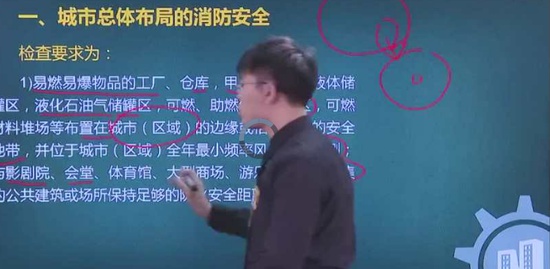 一、城市总体布局的消防安全
检查要求为：
1)易燃易爆物品的工厂、仓库，甲 液体储
罐区，液化石油气储罐区，可燃、助燃 ，可燃
材料堆场等布置在城市（区域）的边缘或 的安全
地带，并位于城市（区域）全年最小频率风
与影剧院、会堂、体育馆、大型商场、游
的公共建筑或场所保持足够的防 安全距